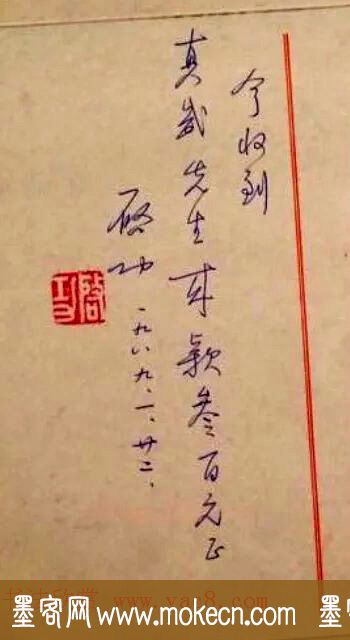 今收到
真 先生 款叁百元正
啓功 一九八九.一.廿二.
啓功
墨客网 www.mokecn.com